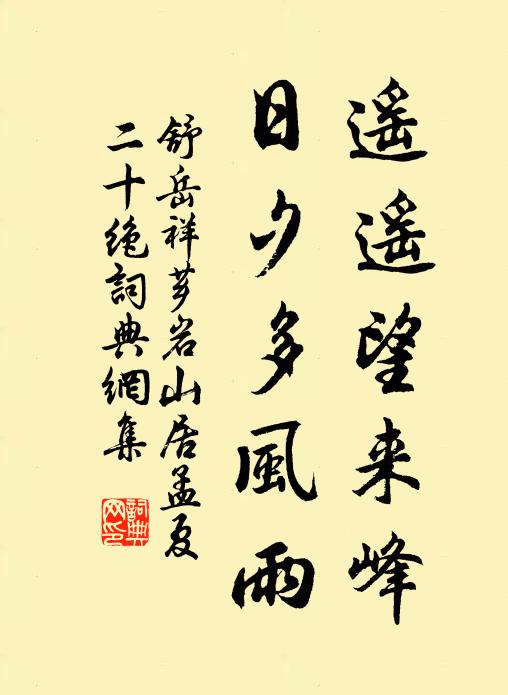 遥遥望来峰
日夕多風雨
舒岳祥芗岩山居孟夏
二十絶詞典網集
詞典
网印